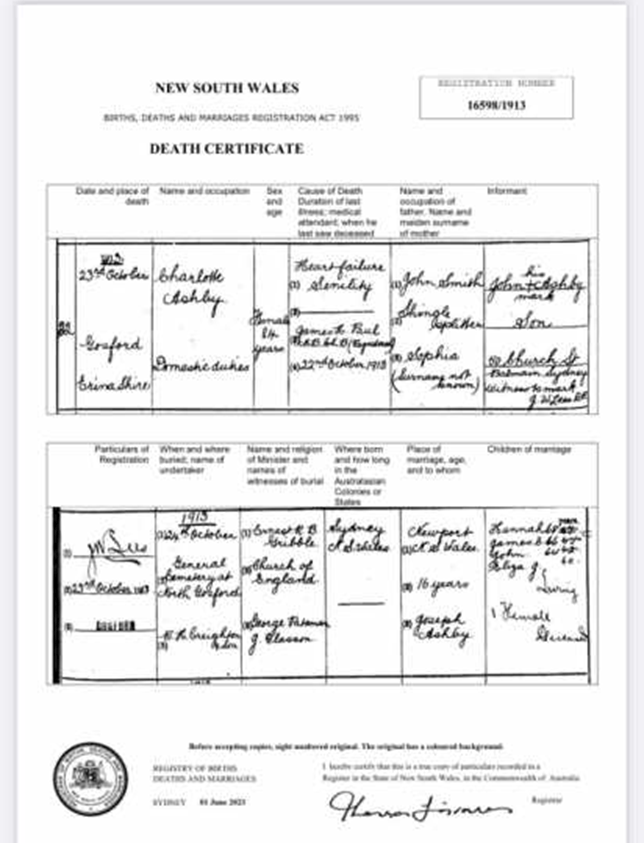 NEW SOUTH WALES
BIRTHS, DEATHS AND MARRIAGES REGISTRATION ACT 1995
DEATH CERTIFICATE
REGISTRATION NUMBER
16598/1913
Date and place of
death
Name and occupation
Sex
and
age
Cause of Death
Duration of last
illness; medical
attendant; when he
last saw deceased
Name and
occupation of
father. Name and
maiden surname
of mother
Informant
1913
23rd October
Gosford
Erina Shire
Charlotte
Ashby
Domestic duties
Female
84
years
Heart failure
(1) Senility
James R. Paul
(4) 22nd October 1913
(1) John Smith
Shingle
Splitter
(3) Sophia
(Surname not
known)
his
John + Ashby
mark
Son
Church St
Balmain Sydney
Witness to mark
Particulars of
Registration
When and where
buried; name of
undertaker
Name and religion
of Minister and
names of
witnesses of burial
Where born
and how long
in the
Australasian
Colonies or
States
Place of
marriage, age,
and to whom
Children of marriage
23rd October 1913
Gosford
1913
(1) 24th October
General
Cemetery at
North Gosford
Creighton
(1) Ernest R. B.
Gribble
(2) Church of
England
George Pateman
J. Glasson
Sydney
N. S. Wales
Newport
(1) N. S. Wales
(2) 16 years
(3) Joseph
Ashby
years
Hannah
James
John
Eliza J.
Living
1 Female
Deceased
Before accepting copies, sight unaltered original. The original has a coloured background.
REGISTRY OF BIRTHS
DEATHS AND MARRIAGES
SYDNEY 01 June 2021
I hereby certify that this is a true copy of particulars recorded in a
Register in the State of New South Wales, in the Commonwealth of Australia
Registrar